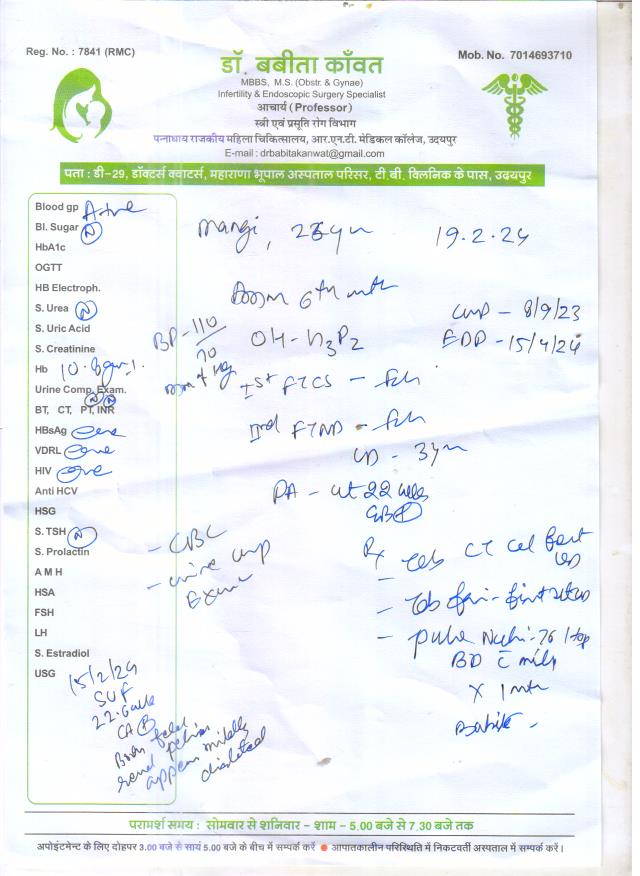 Reg. No. : 7841 (RMC)
Mob. No. 7014693710
डॉ. बबीता काँवत
MBBS, M.S. (Obstr. & Gynae)
Infertility & Endoscopic Surgery Specialist
आचार्य (Professor)
स्त्री एवं प्रसूति रोग विभाग
पन्नाधाय राजकीय महिला चिकित्सालय, आर.एन.टी. मेडिकल कॉलेज, उदयपुर
E-mail : drbabitakanwat@gmail.com
पता : डी-29, डॉक्टर्स क्वाटर्स, महाराणा भूपाल अस्पताल परिसर, टी.बी. क्लिनिक के पास, उदयपुर
Blood gp A+ve
Bl. Sugar N
Mangi, 23yr
19.2.24
HbA1c
OGTT
HB Electroph.
6th mth
S. Urea N
LMP - 8/9/23
S. Uric Acid
BP - 110/70
OH - G3P2
EDD - 15/4/24
S. Creatinine
Hb 10.8gm%
Ist FTCS - Fch
Urine Comp. Exam. N
BT, CT, PT, INR N
IInd FTND - Fch
HBsAg -ve
LD - 3yr
VDRL -ve
HIV -ve
PA - ut 22 wks
Anti HCV
HSG
S. TSH N
- CBC
Rx
- Tab CT Cal
S. Prolactin
- Urine Comp
Exam
A M H
HSA
- Tab
FSH
LH
- Pulv
BD c milk
S. Estradiol
x 1 mth
USG 15/2/24
SLIF
22.6 wks
Both fetal
renal pelvis
appear mildly
dilated
परामर्श समय : सोमवार से शनिवार - शाम - 5.00 बजे से 7.30 बजे तक
अपोइंटमेन्ट के लिए दोहपर 3.00 बजे से सायं 5.00 बजे के बीच में सम्पर्क करें ● आपातकालीन परिस्थिति में निकटवर्ती अस्पताल में सम्पर्क करें।